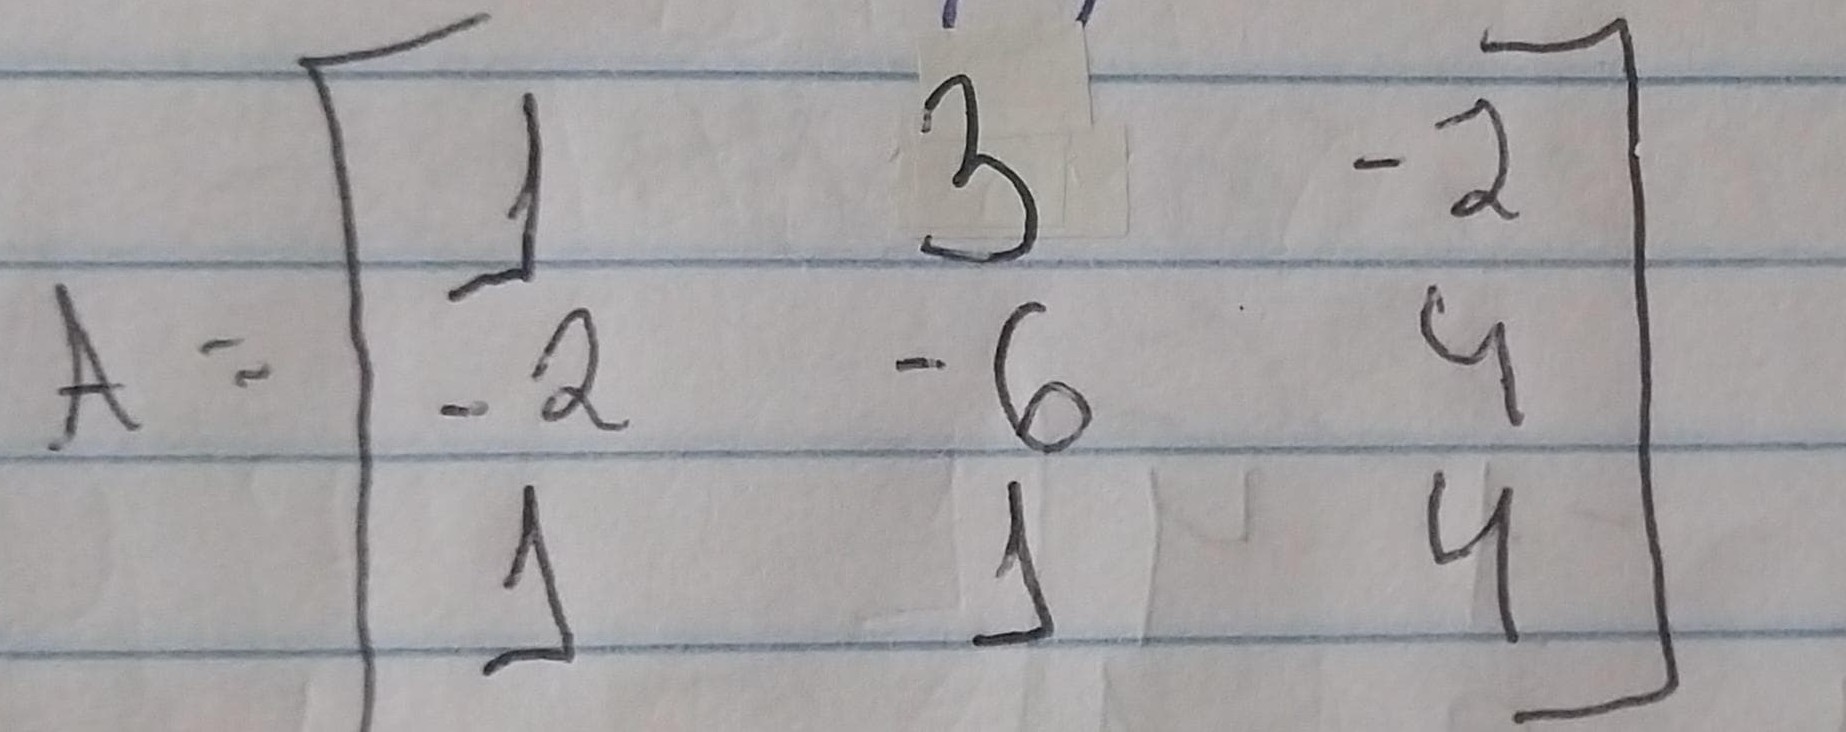 1 3 -2
A = -2 -6 4
1 1 4